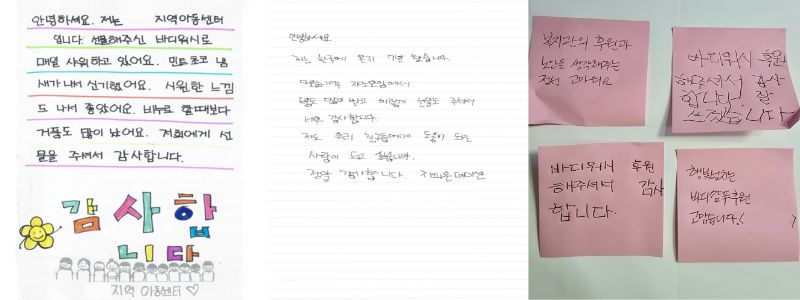 안녕하세요. 저는 지역아동센터
입니다. 선물해주신 바디워시로
매일 샤워하고 있어요. 민트초코 냄
새가 나서 신기했어요. 시원한 느낌
도 나서 좋았어요. 비누로 할때보다
거품도 많이 났어요. 저희에게 선
물을 주셔서 감사합니다.
감사합
니다
지역 아동센터♡
안녕하세요
저는 한국에 온지 7년 됐습니다.
자조모임에서
이렇게 선물도 주셔서
너무 감사합니다.
저도 우리 친구들에게 도움이 되는
사람이 되고 싶습니다.
정말 감사합니다.
복지관의 후원과
노인을 생각해주는
정성 고마워요
바디워시 후원
해주셔서 감사
합니다. 잘
쓰겠습니다
바디워시 후원
해주셔서 감사
합니다.
행복넘치는
바디샴푸후원
고맙습니다!